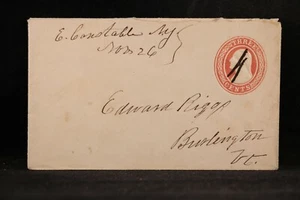 E. Constable NY
Nov 26
THREE
CENTS
Edward Riggs
Burlington
Vt.